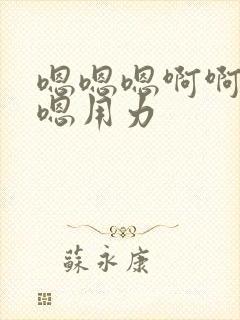 嗯嗯嗯啊啊
嗯用力
蘇永康